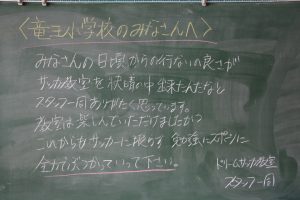 〈竜王小学校のみなさんへ〉
みなさんの日頃からの行ないの良さが
サッカー教室を快晴の中出来たんだなと
スタッフ一同ありがたく思っています。
教室は楽しんでいただけましたか?
これからもサッカーに限らず勉強にスポーツに
全力でぶつかっていって下さい。
ドリームサッカー教室
スタッフ一同